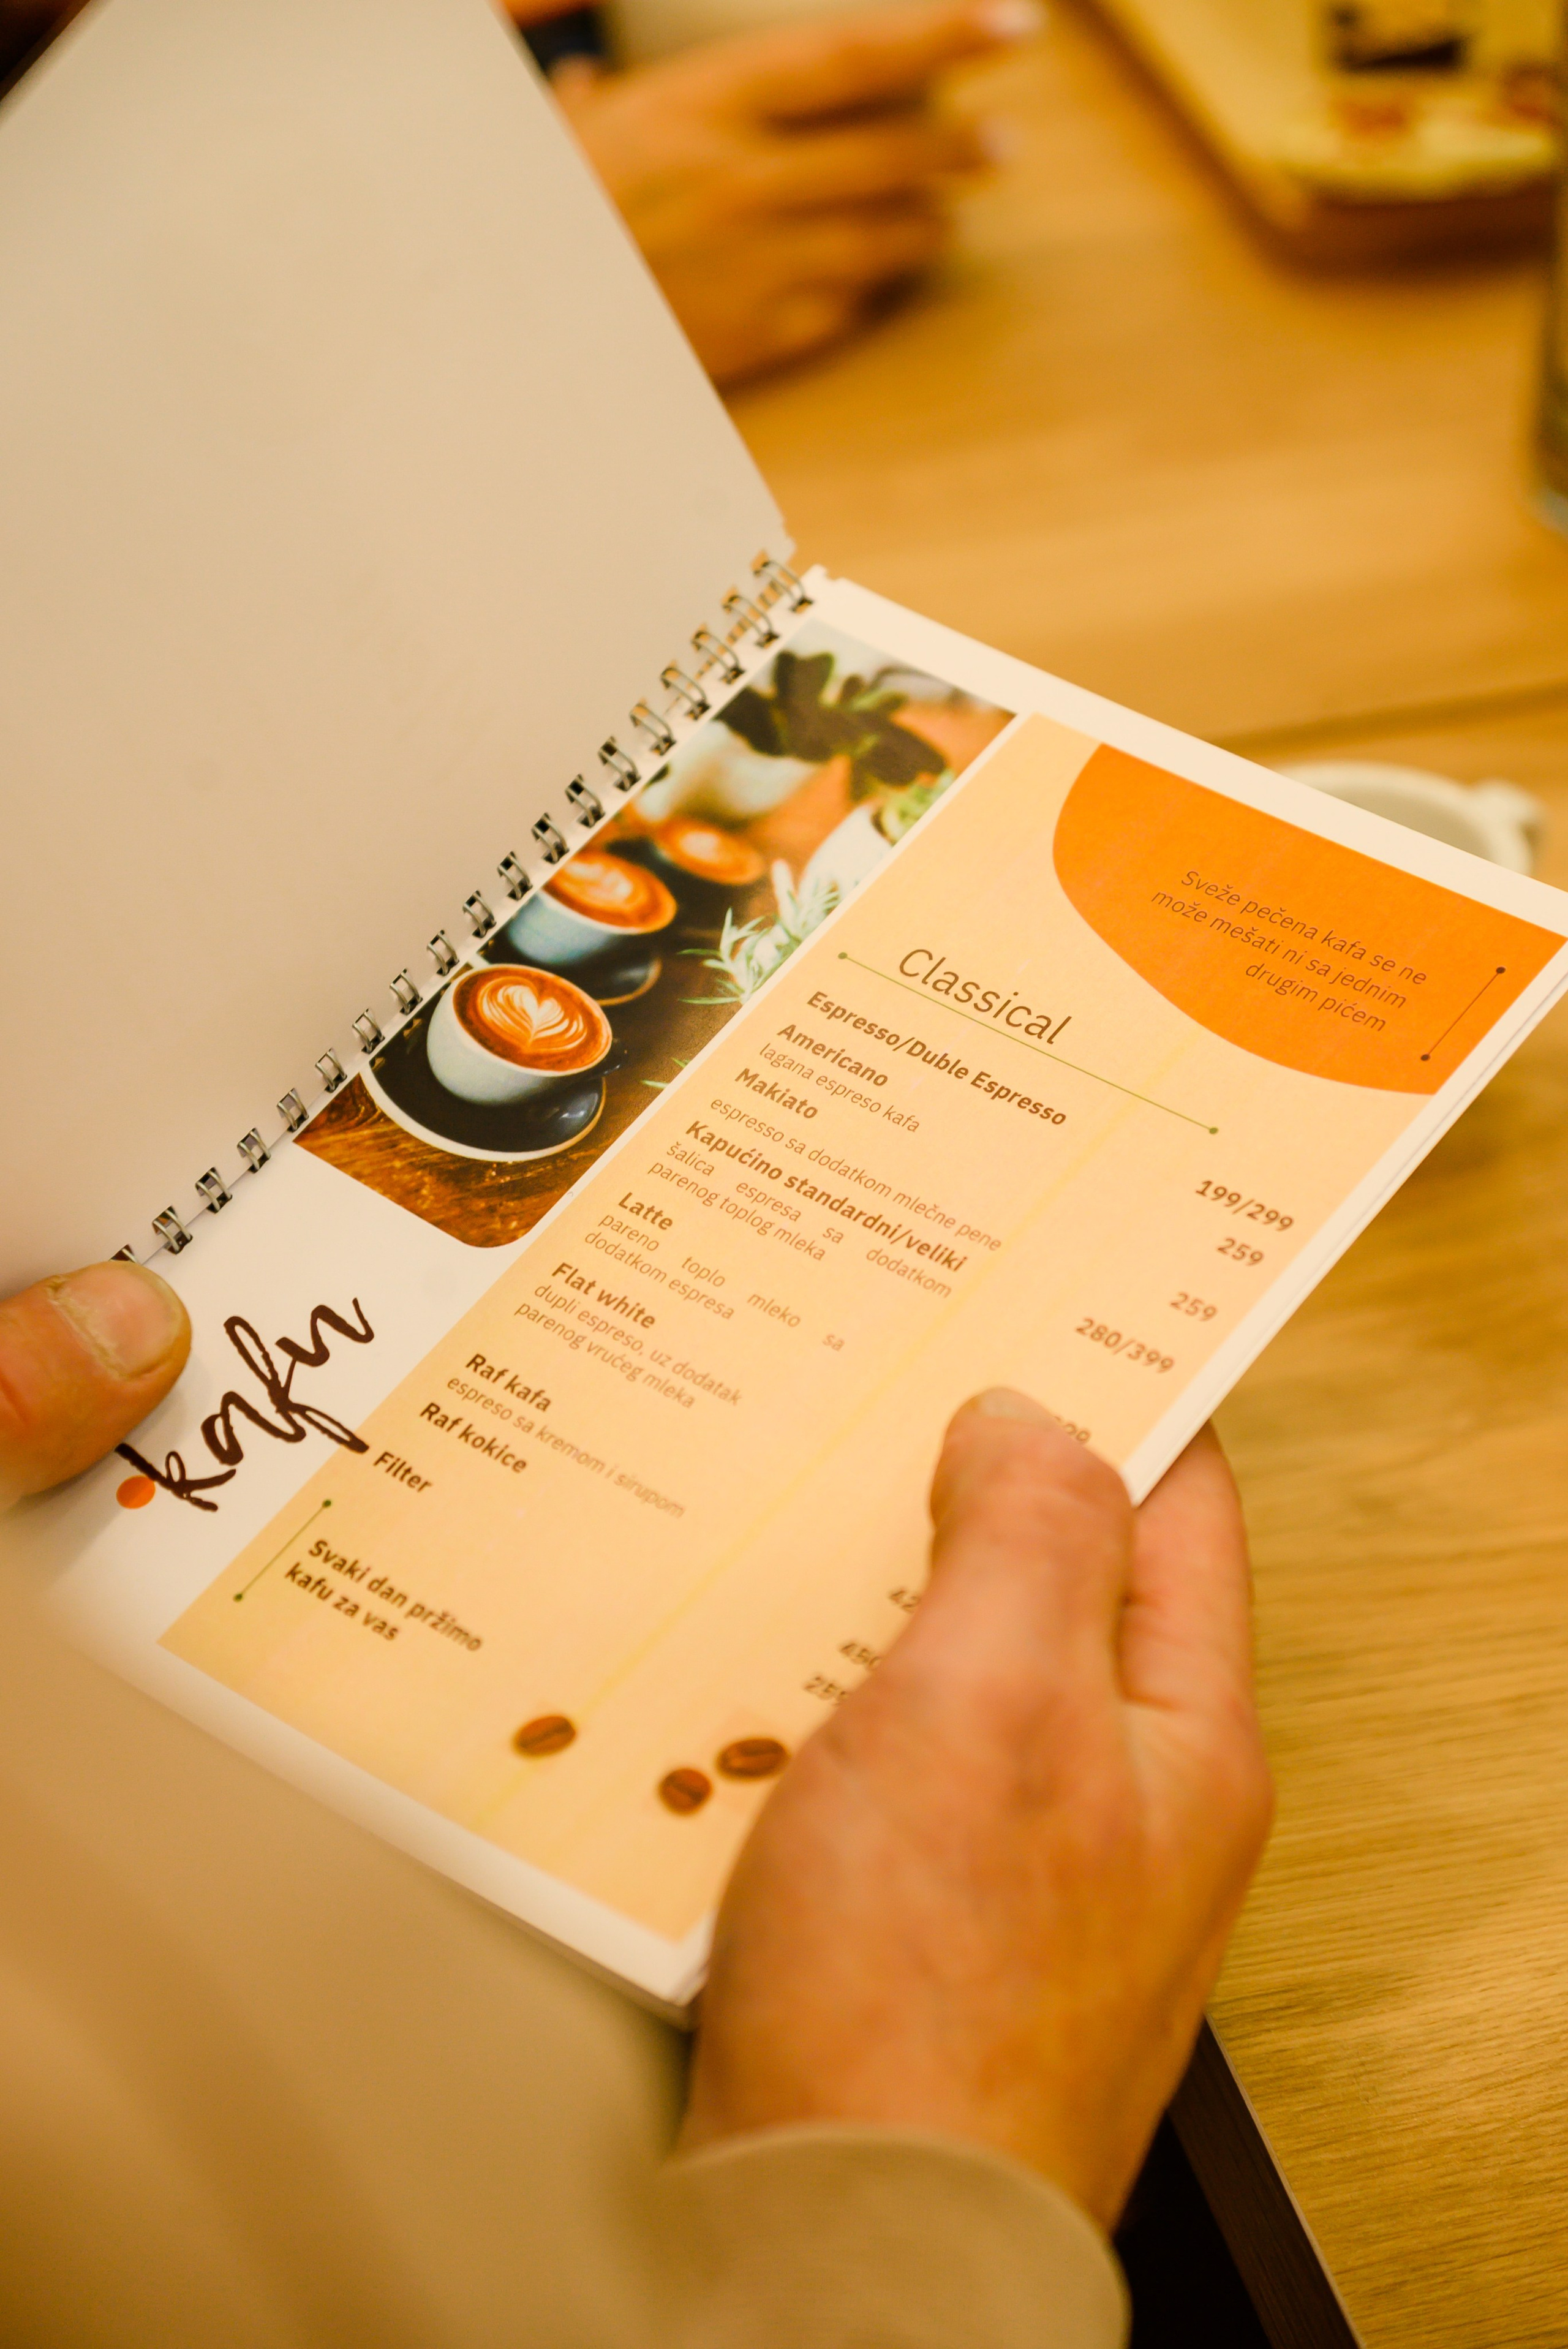 Sveže pečena kafa se ne
može mešati ni sa jednim
drugim pićem
Classical
Espresso/Duble Espresso 199/299
Americano 259
lagana espreso kafa
Makiato 259
espresso sa dodatkom mlečne pene
Kapućino standardni/veliki 280/399
šalica espresa sa dodatkom
parenog toplog mleka
Latte
pareno toplo mleko sa
dodatkom espresa
Flat white
dupli espreso, uz dodatak
parenog vrućeg mleka
Raf kafa
espreso sa kremom i sirupom
Raf kokice
Filter
Svaki dan pržimo
kafu za vas
kafu